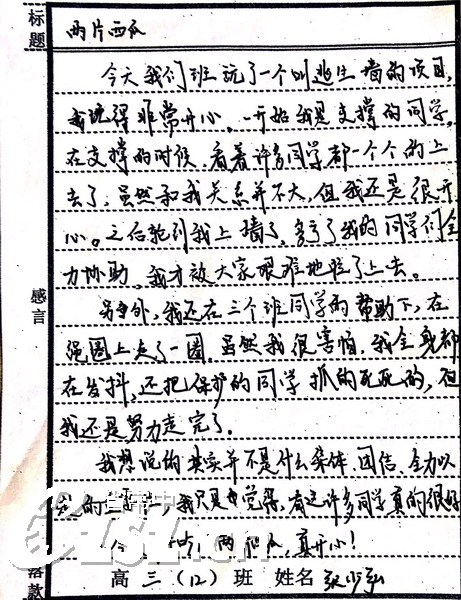 标题
两片西瓜
今天我们班玩了一个叫逃生墙的项目,
我玩得非常开心。一开始我是支撑的同学,
在支撑的时候,看着许多同学都一个个的上
去了,虽然和我关系并不大,但我还是很开
心。之后轮到我上墙了,亏了我的同学们全
力协助,我才被大家艰难地拉了上去。
另外,我还在三个班同学的帮助下,在
绳圈上走了一圈,虽然我很害怕,我全身都
在发抖,还把保护的同学抓的死死的,但
我还是努力走完了。
感言
我想说的其实并不是什么集体、团结、全力以
的 我只是觉得,有这许多同学真的很好
两片西瓜,真开心!
落款
高三(12)班 姓名